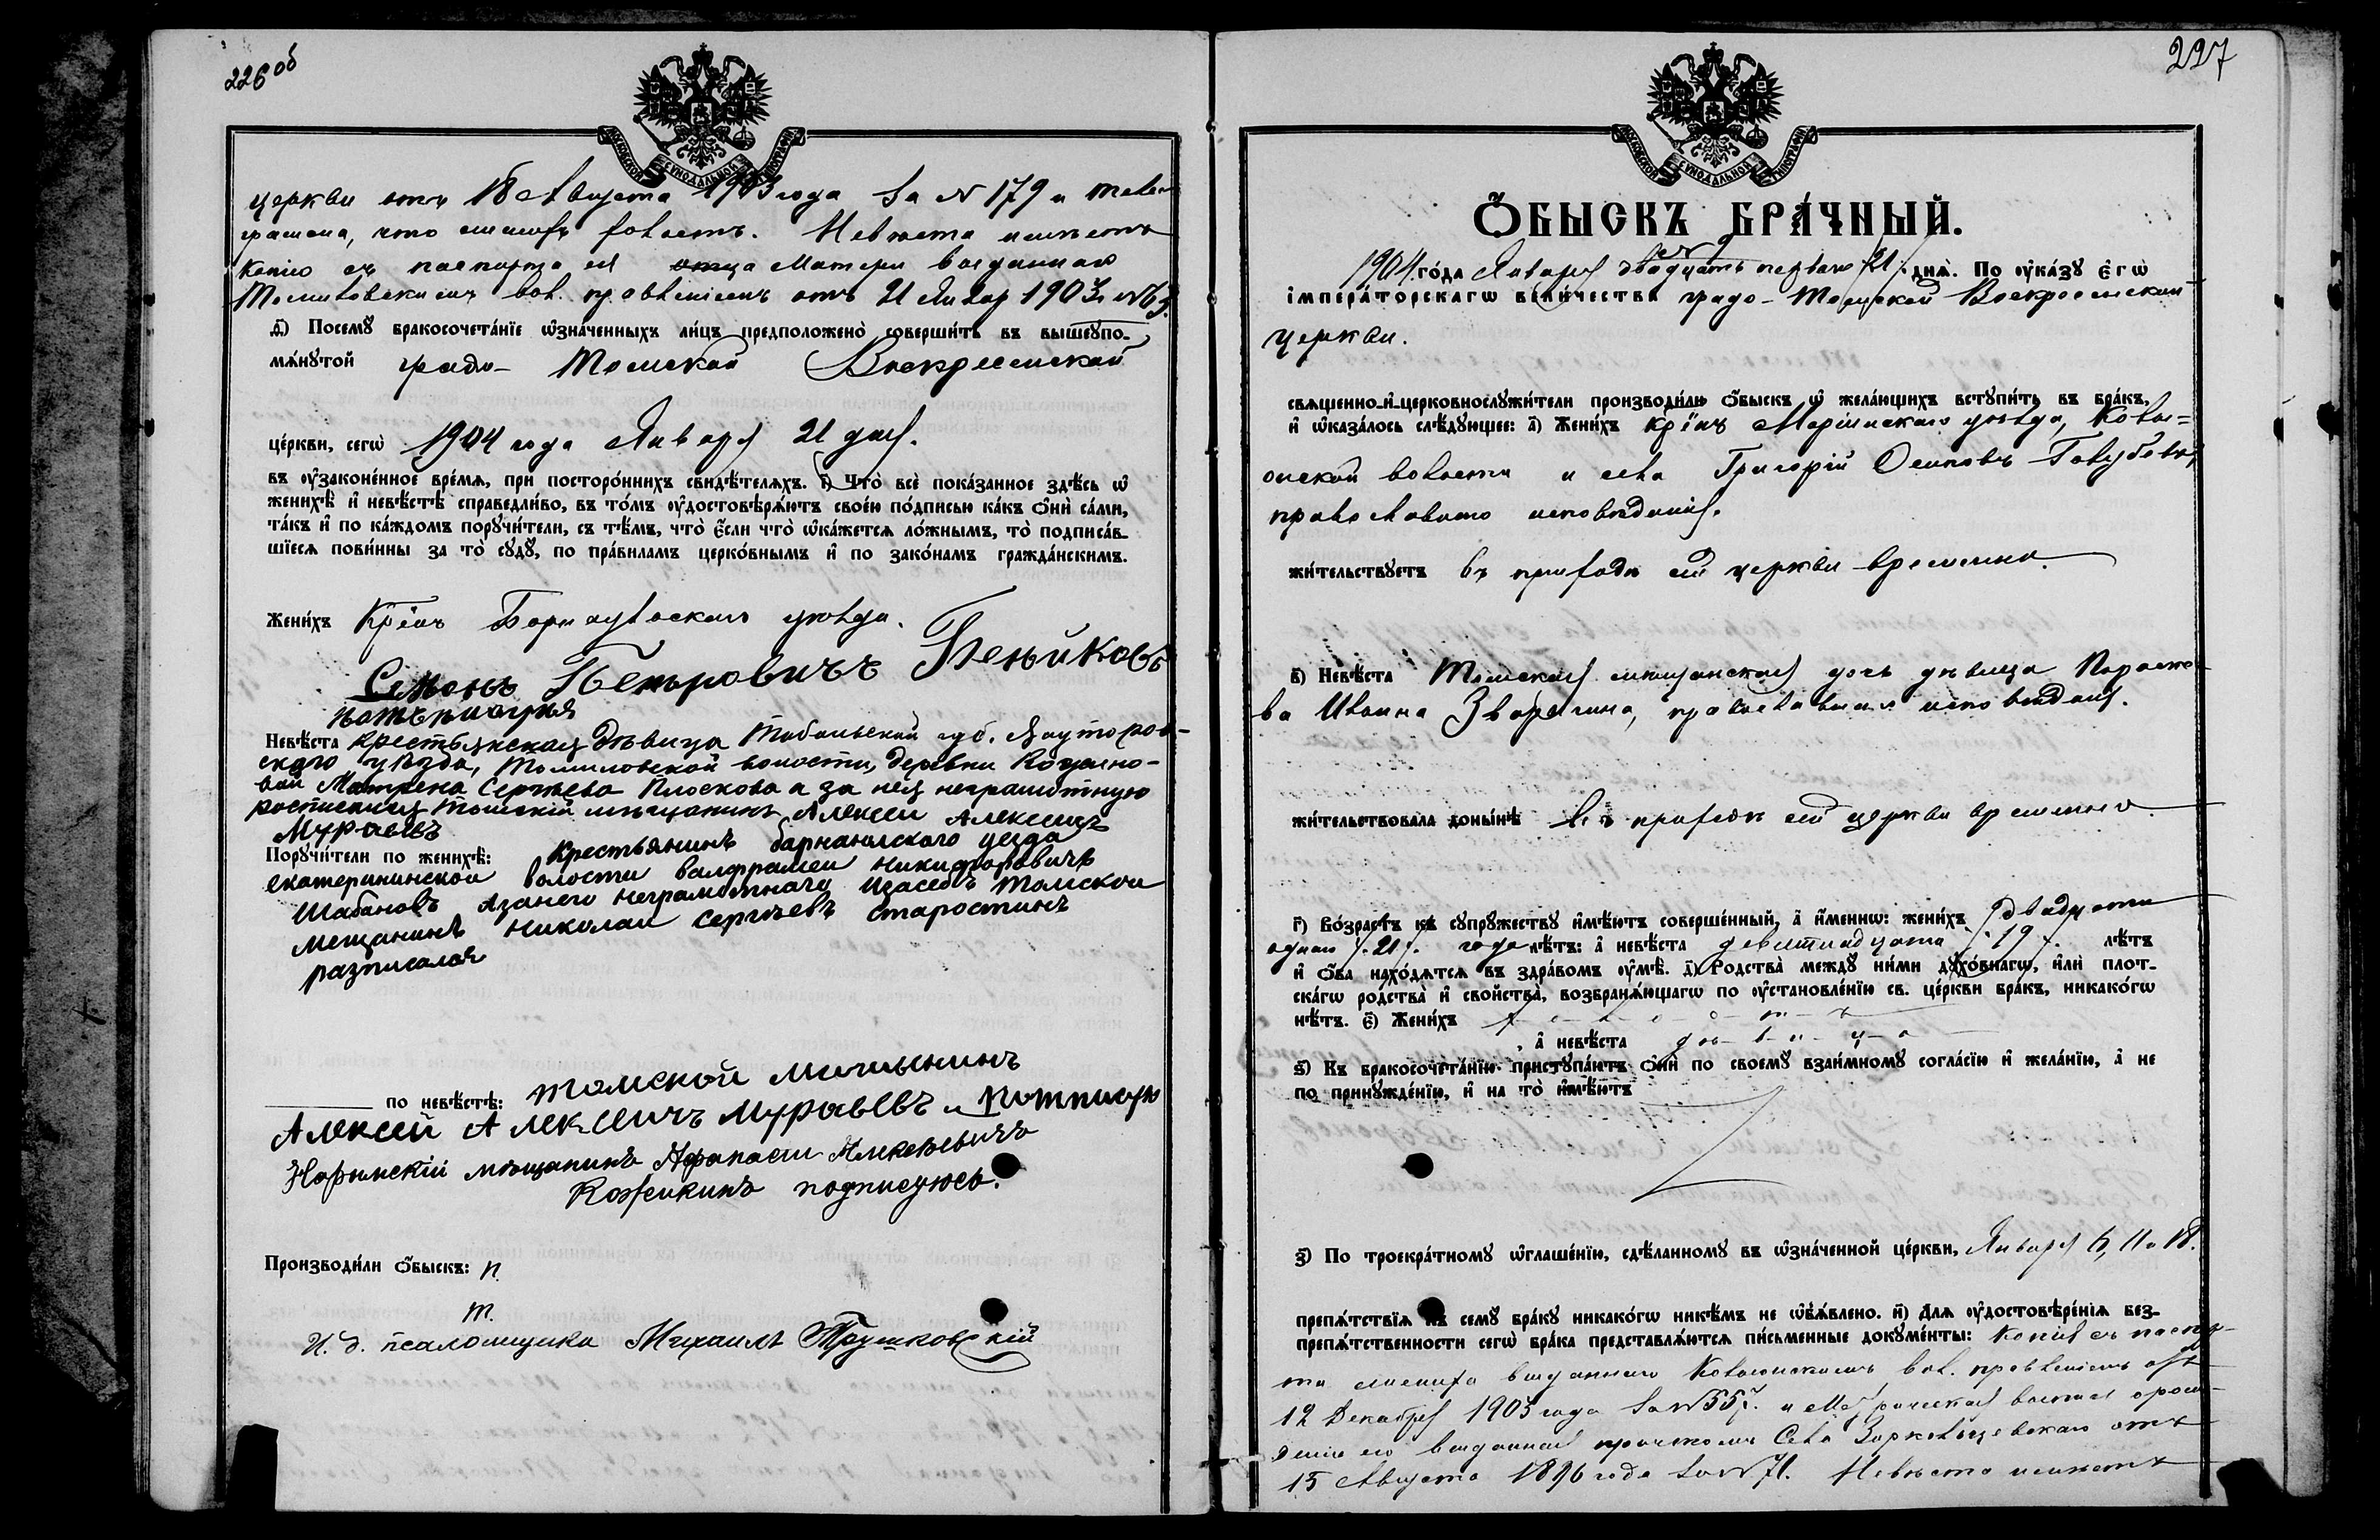 226 об
МОСКОВСКОЙ СѴНОДАЛЬНОЙ ТИПОГРАФІИ
церкви отъ 18 Августа 1903 года за № 179 и теле-
грамма, что женихъ холостъ. Невѣста имѣетъ
копію съ паспорта ея отца Матери выданнаго
Томиловскимъ вол. правленіемъ отъ 21 Январ 1903 г.
д҃) Посемꙋ̀ бракосочета́нїе ѡ҆зна́ченныхъ ли́цъ предположено̀ соверши́ть въ вышеꙋпо-
мѧ́нꙋтой градо- Томской Воскресенской
це́ркви, сегѡ̀ 1904 года Января 21 дня.
въ ᲂу҆зако́не́нное вре́мѧ, при посторо́ннихъ свидѣ́телѧхъ. і҃) Что̀ всѐ пока́занное здѣ́сь ѡ҆
женихѣ̀ и҆ невѣ́стѣ справедли́во, въ то́мъ ᲂу҆достовѣрѧ́ютъ свое́ю по́дписью ка́къ ѻ҆нѝ са́ми,
та́къ и҆ по ка́ждомъ порꙋчи́тели, съ тѣ́мъ, что̀ є҆́сли что̀ ѡ҆ка́жетсѧ ло́жнымъ, то̀ подписа́в-
шїесѧ пови́нны за то̀ сꙋдꙋ̀, по пра́виламъ церко́внымъ и҆ по зако́намъ гражда́нскимъ.
Жени́хъ Кр-нъ Барнаульскаго уѣзда.
Семонъ Петровичъ Пеньйковъ
Невѣ́ста крестьянская дѣвица Тобольской губ. Ялуторов-
скаго уѣзда, Томиловской волости, деревни
Матрена Сергѣева Плоскова а за нея неграмотную
росписался Томскій мѣщанинъ Алексеи Алексеичъ
Муравьевъ
Порꙋчи́тели по женихѣ̀: Крестьянинъ барнаулского уезда
екатерининской волости Никифоровичъ
Шабановъ азанего неграмотнаго Томскои
мещанинъ Николаи Сергѣевъ Старостинъ
разписался
по невѣ́стѣ: томской мещенинъ
Алексей Алексеичъ Муравьевъ потписую
Нарымскій мѣщанинъ Афанасiи Алексѣевичъ
Кожикинъ подписуюсь.
Производи́ли ѻ҆́быскъ: п.
т.
И. д. псаломщика Михаилъ Трушковскій
227
МОСКОВСКОЙ СѴНОДАЛЬНОЙ ТИПОГРАФІИ
Ѻ҆́БЫСКЪ БРА́ЧНЫЙ.
1904 го́да Января двадцать перваго /21/ днѧ̀. По ᲂу҆ка́зꙋ є҆гѡ̀
і҆мпера́торскагѡ вели́чества градо-Томской Воскресенской
церкви.
свѧще́нно-и҆-церковнослꙋжи́тели производи́ли ѻ҆́быскъ ѡ҆ жела́ющихъ вступи́ть въ бра́къ,
и҆ ѡ҆каза́лось слѣ́дꙋющее: а҃) Жени́хъ кр-нъ Маріинскаго уѣзда,
волости и села Григорій Осиповъ Голубевъ,
православнаго исповѣданія.
жи́тельствꙋетъ въ приходѣ сей церкви временно.
в҃) Невѣ́ста Томская мѣщанская дочь дѣвица Параске-
ва Ивана Зворыгина, православнаго исповѣданія.
жи́тельствовала доны́нѣ въ приходѣ сей церкви временно.
г҃) Во́зрастъ къ сꙋпрꙋ́жествꙋ и҆мѣ́ютъ соверше́нный, а҆ и҆́меннѡ: жени́хъ двадцати
одного /.21/. года лѣ́тъ: а҆ невѣ́ста девятнадцати /.19/. лѣ́тъ
и҆ ѻ҆́ба нахо́дѧтсѧ въ здра́вомъ ᲂу҆мѣ̀. д҃) Родства̀ междꙋ̀ ни́ми дꙋхо́внагѡ, и҆лѝ плот-
ска́гѡ родства̀ и҆ свойства̀, возбранѧ́ющагѡ по ᲂу҆становле́нїю св. це́ркви бра́къ, никако́гѡ
нѣ́тъ. є҃) Жени́хъ х-о-л-о-с-т-ъ
, а҆ невѣ́ста д-ѣ-в-и-ц-а
ѕ҃) Къ бракосочета́нїю пристꙋпа́ютъ ѻ҆нѝ по своемꙋ̀ взаи́мномꙋ согла́сїю и҆ жела́нїю, а҆ не
по принꙋжде́нїю, и҆ на то̀ и҆мѣ́ютъ
з҃) По троекра́тномꙋ ѡ҆глаше́нїю, сдѣ́ланномꙋ въ ѡ҆зна́ченной це́ркви, Января 6, 11 и 18.
препѧ́тствїѧ къ семꙋ̀ бра́кꙋ никако́гѡ никѣ́мъ не ѡ҆б̾ѧ́влено. и҃) Длѧ ᲂу҆достовѣре́нїѧ без-
препѧ́тственности сегѡ̀ бра́ка представлѧ́ютсѧ пи́сьменные докꙋме́нты: копія съ паспор-
та жениха выданнаго вол. правленіемъ отъ
12 Декабря 1903 года за № 557. и Метрическая выпись о рож-
деніи его выданная причтомъ Села отъ
15 Августа 1896 года за № 71. Невѣста имѣетъ